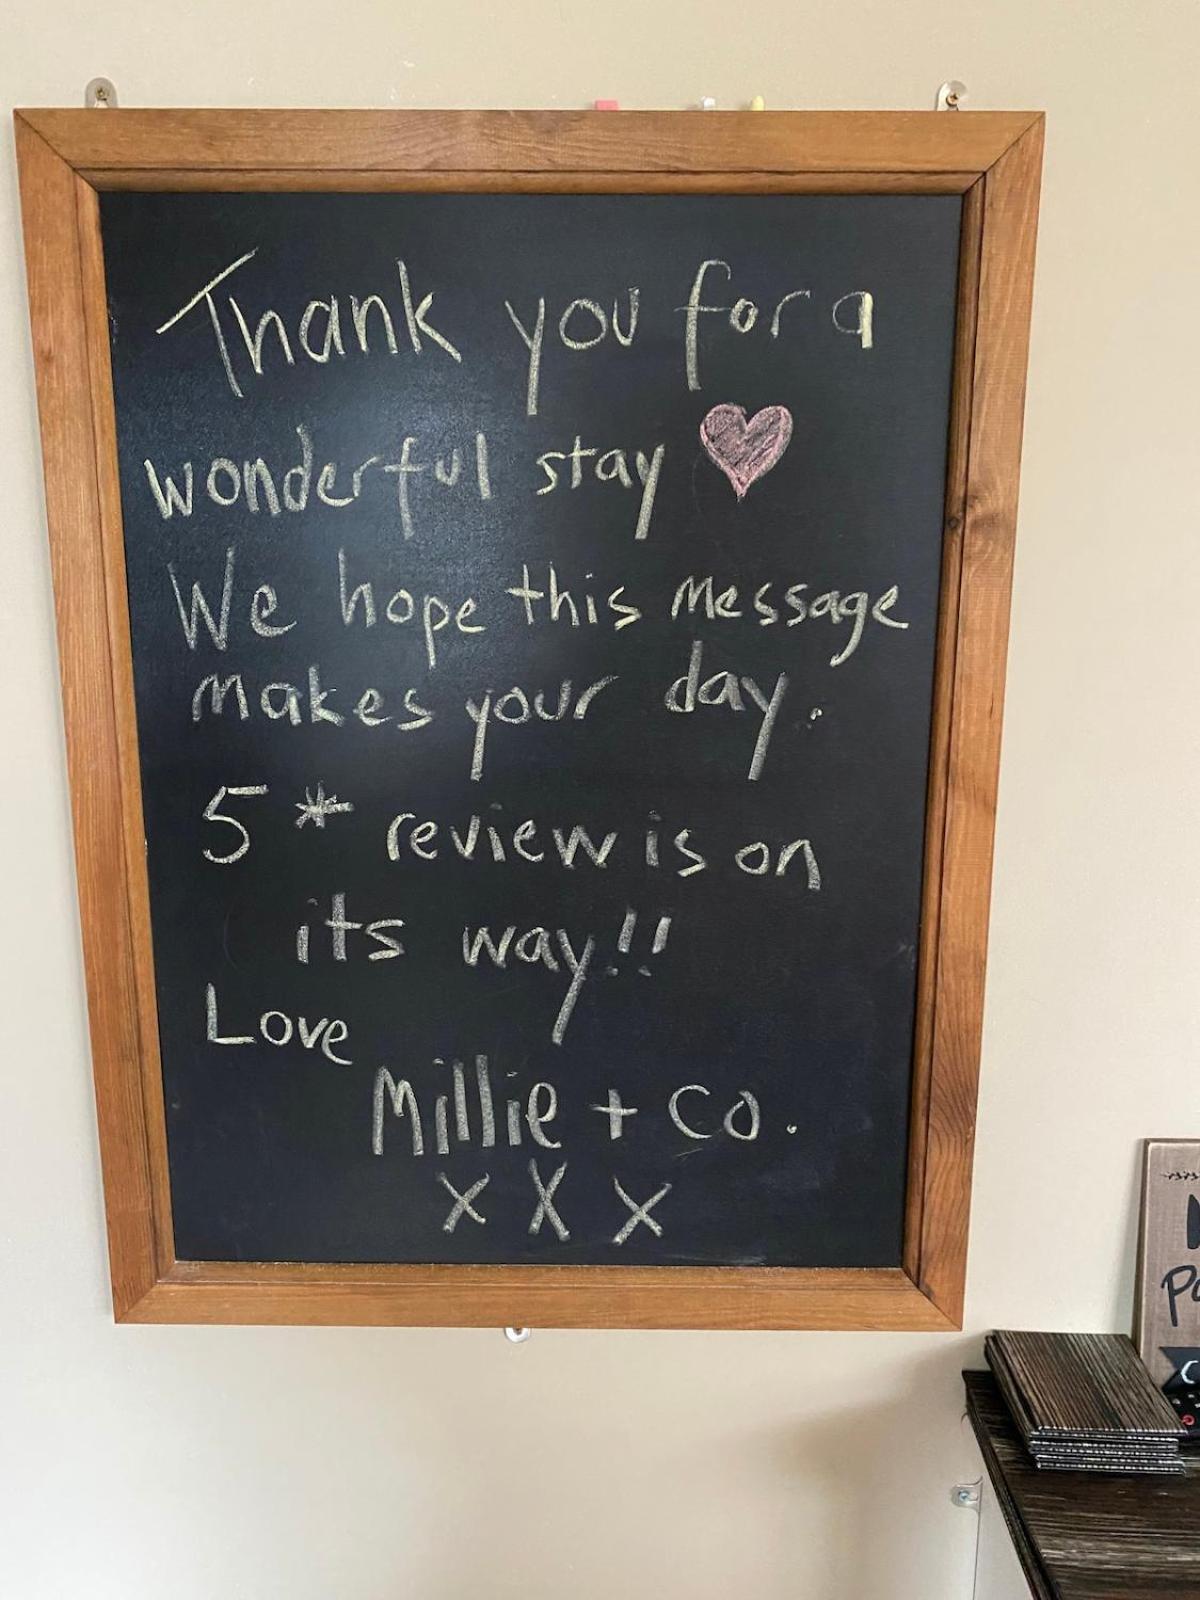 Thank you for a
wonderful stay ♥
We hope this message
makes your day.
5 * review is on
its way!!
Love
Millie + Co.
x x x